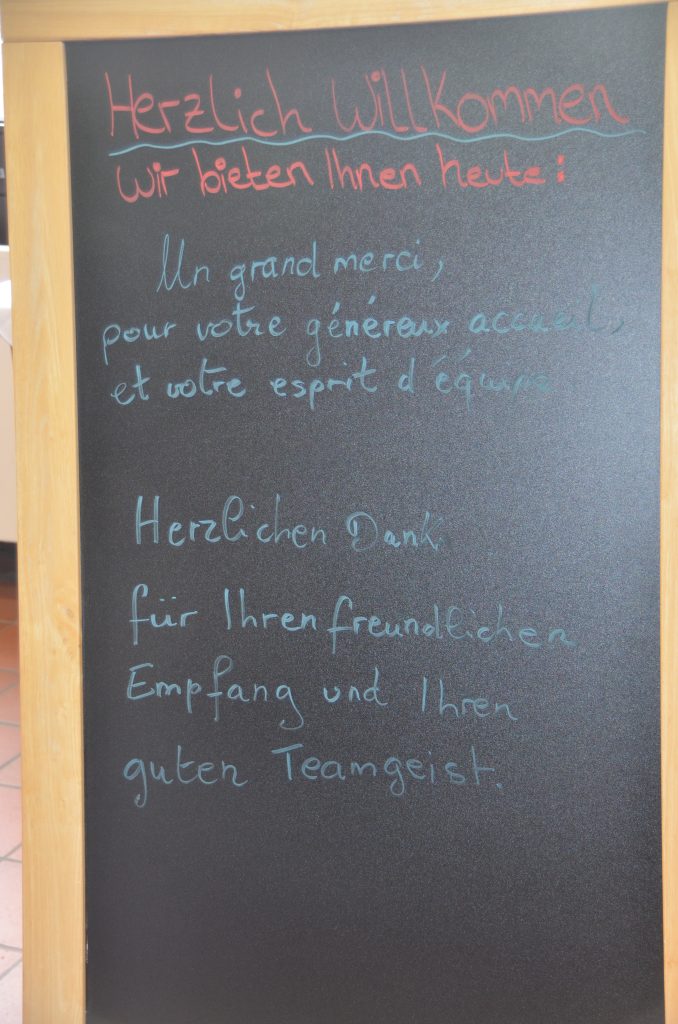 Herzlich Willkommen
Wir bieten Ihnen heute:
Un grand merci,
pour votre généreux accueil,
et votre esprit d'équipe
Herzlichen Dank
für Ihren freundlichen
Empfang und Ihren
guten Teamgeist.